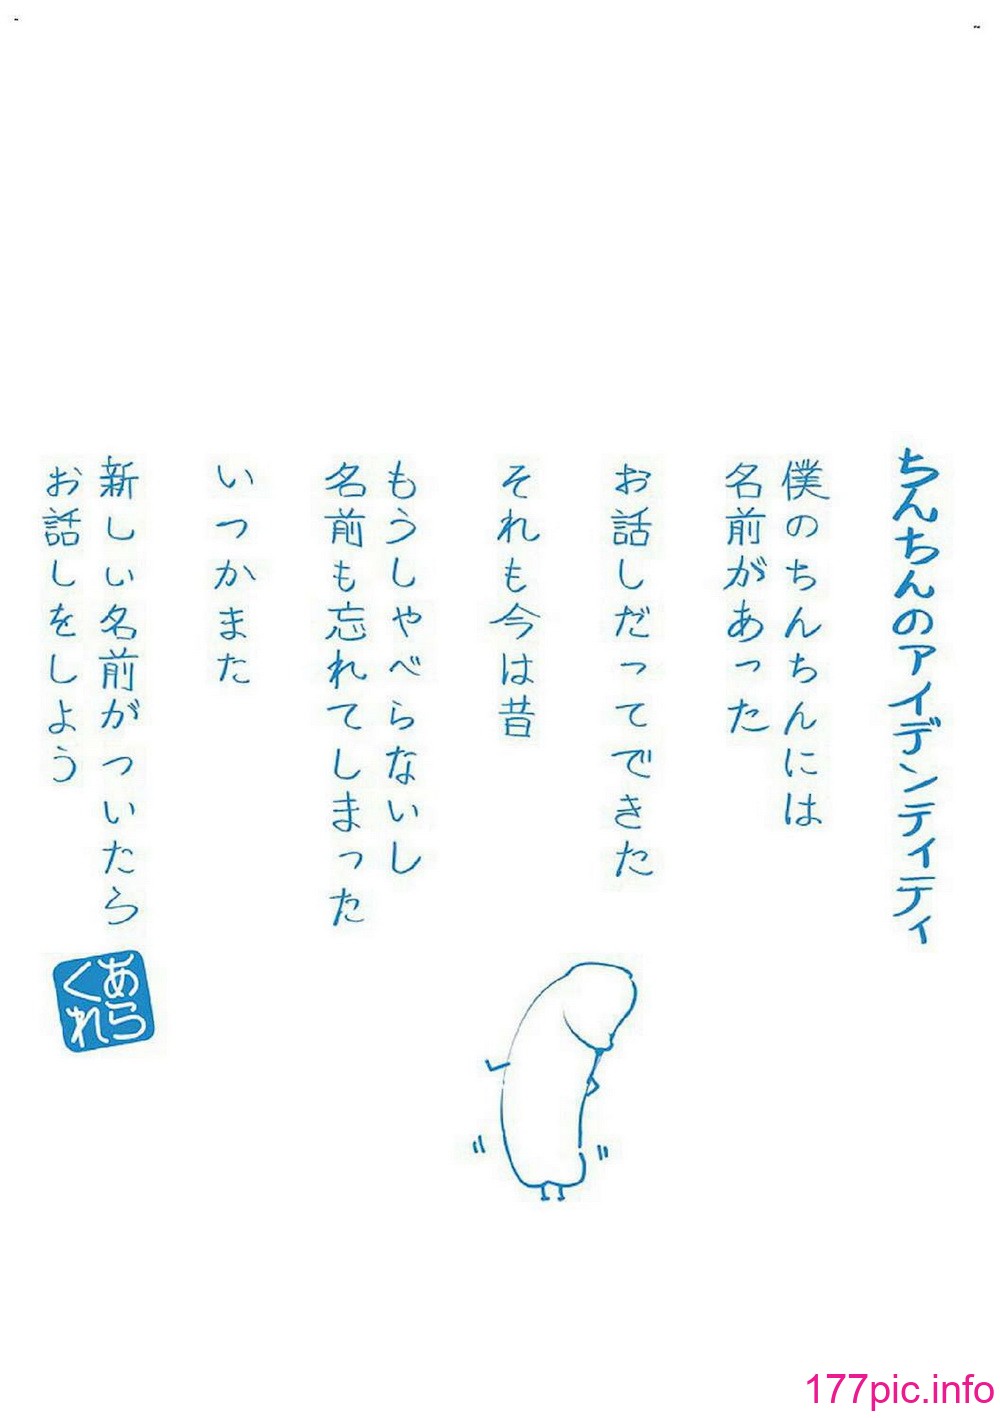 ちんちんのアイデンティティ
僕のちんちんには
名前があった
お話しだってできた
それも今は昔
もうしゃべらないし
名前も忘れてしまった
いつかまた
新しい名前がついたら
お話しをしよう
あら
くれ
177pic.info